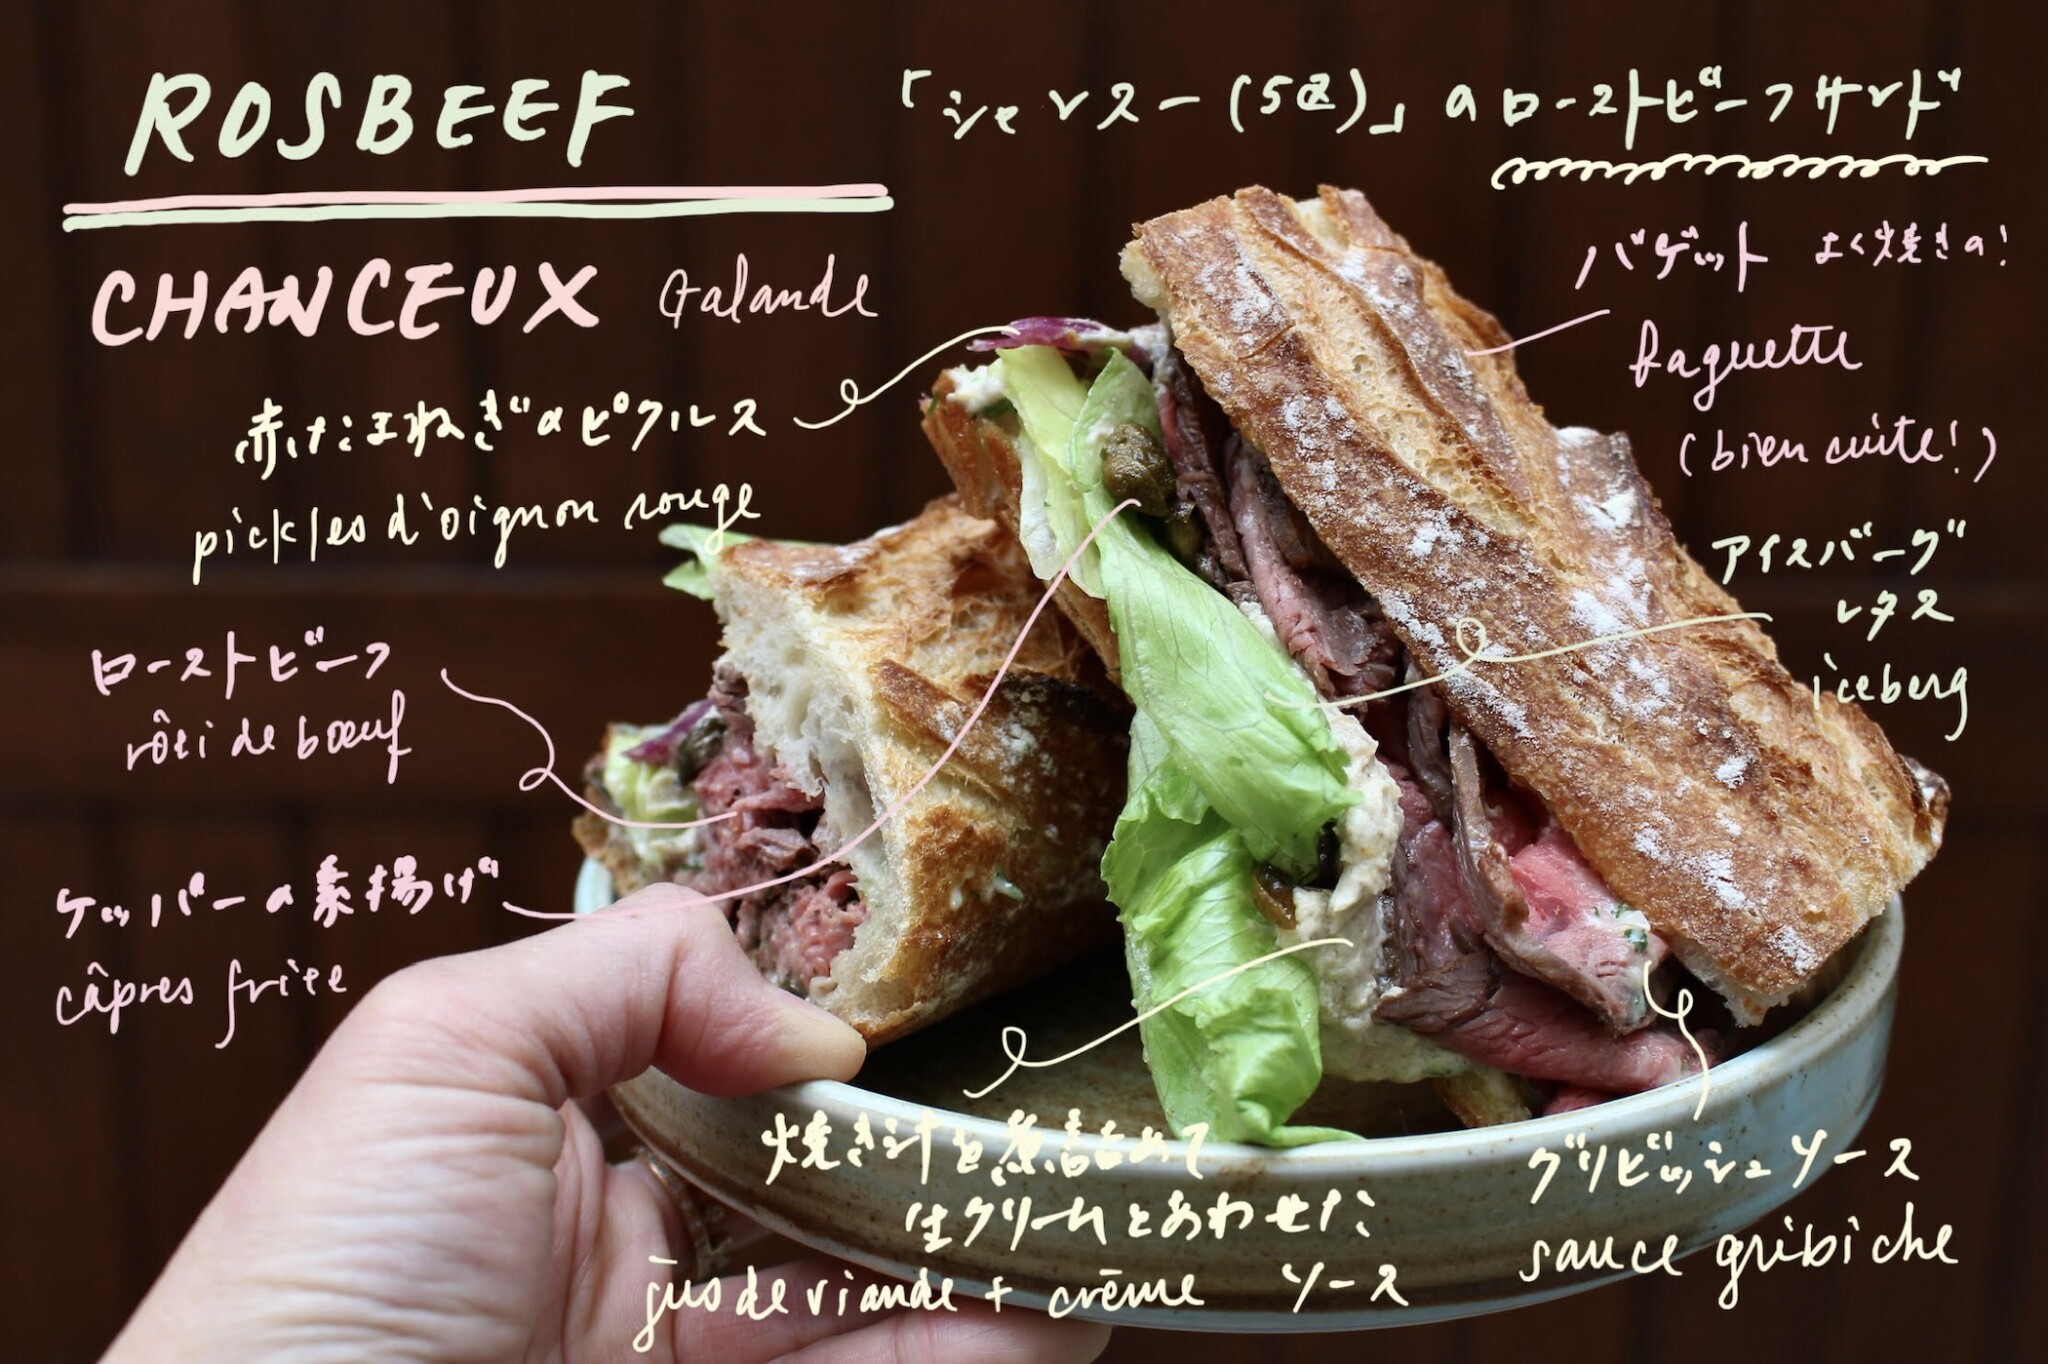 ROSBEEF
CHANCEUX Galande
「シャンスー(5区)」のローストビーフサンド
バゲット よく焼きの!
baguette
(bien cuite!)
赤たまねぎのピクルス
pickles d'oignon rouge
アイスバーグ
レタス
iceberg
ローストビーフ
rôti de bœuf
ケッパーの素揚げ
câpres frite
焼き汁を煮詰めて
生クリームとあわせた
jus de viande + crème ソース
グリビッシュソース
sauce gribiche